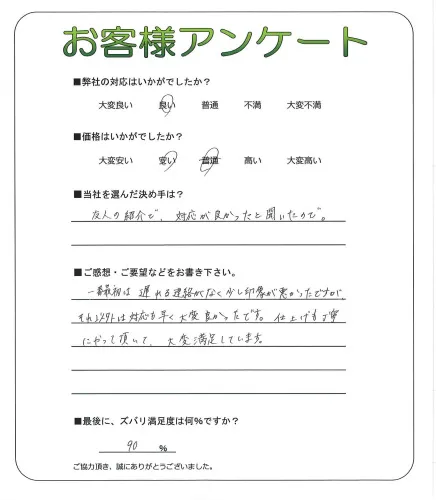 お客様アンケート
■弊社の対応はいかがでしたか？
大変良い　良い　普通　不満　大変不満
■価格はいかがでしたか？
大変安い　安い　普通　高い　大変高い
■当社を選んだ決め手は？
友人の紹介で、対応が良かったと聞いたので。
■ご感想・ご要望などをお書き下さい。
一番最初は遅れる連絡がなく少し印象が悪かったですが、
それ以外は対応も早く大変良かったです。仕上げも丁寧
にやって頂いて、大変満足しています。
■最後に、ズバリ満足度は何％ですか？
90 ％
ご協力頂き、誠にありがとうございました。